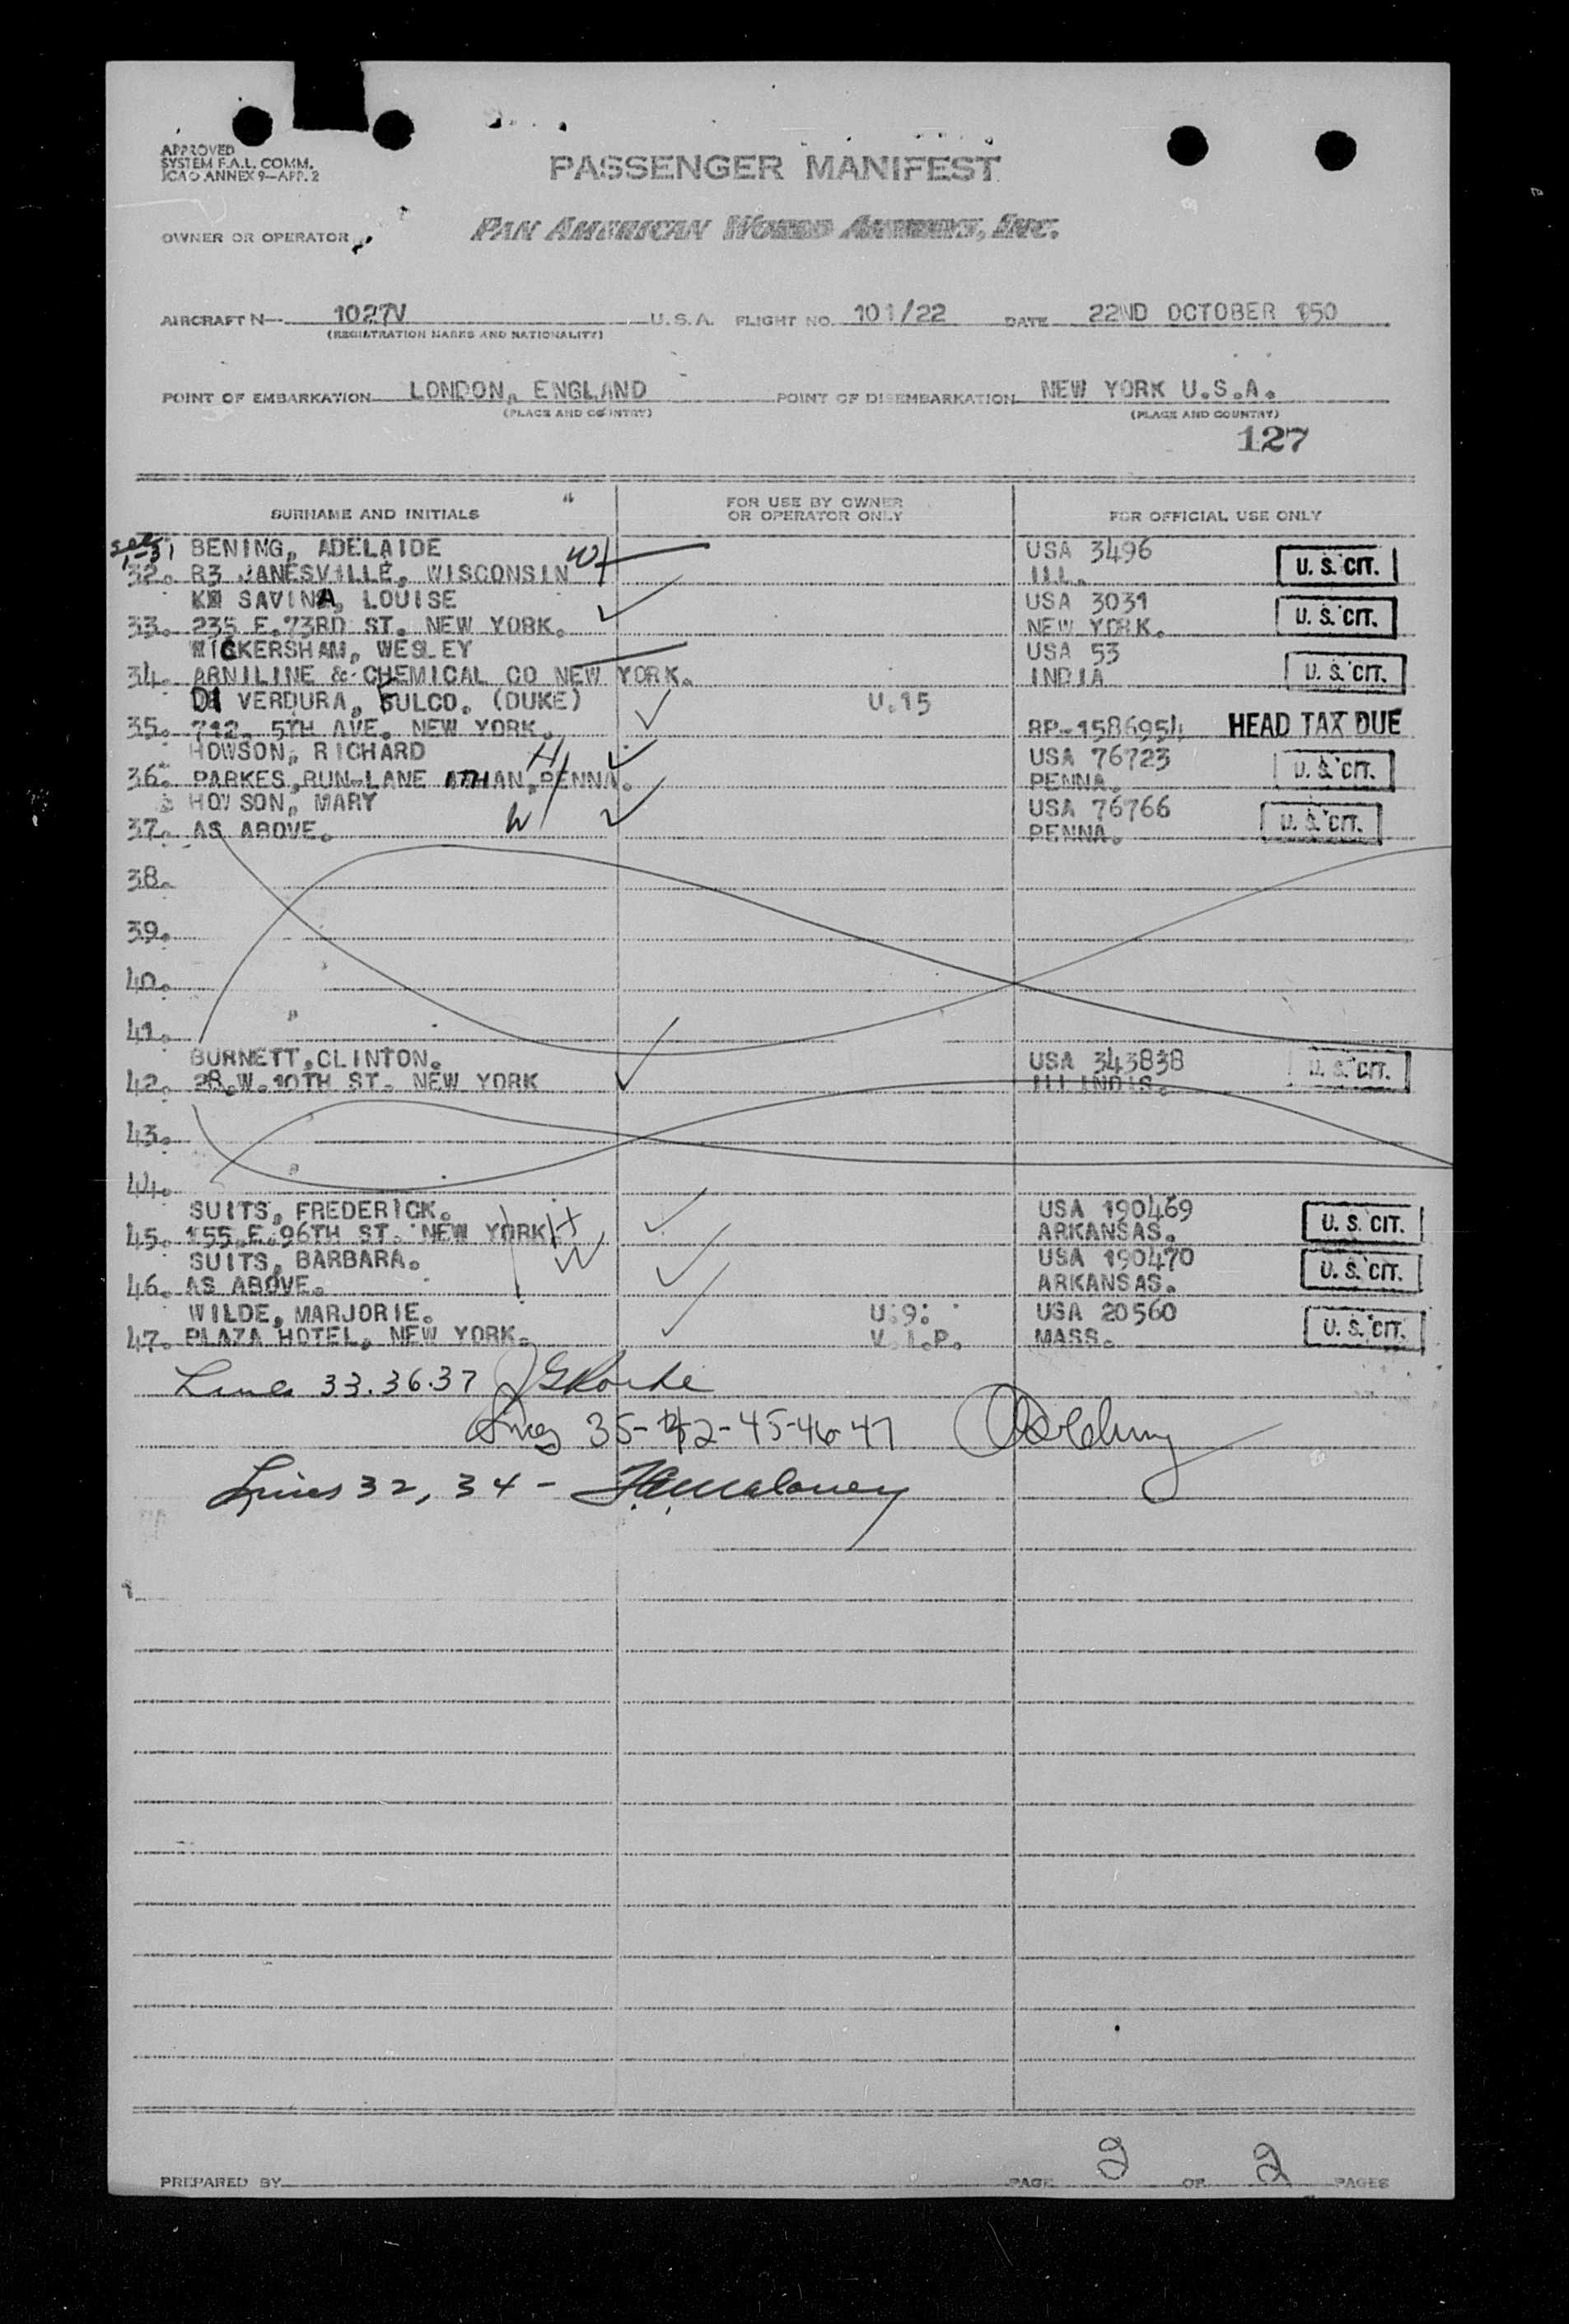 APPROVED
SYSTEM F.A.L. COMM.
ICAO ANNEX 9—APP. 2
PASSENGER MANIFEST
OWNER OR OPERATOR PAN AMERICAN WORLD AIRWAYS, INC.
AIRCRAFT N 1027V U.S.A. FLIGHT NO. 101/22 DATE 22ND OCTOBER 150
(REGISTRATION MARKS AND NATIONALITY)
POINT OF EMBARKATION LONDON, ENGLAND POINT OF DISEMBARKATION NEW YORK U.S.A.
(PLACE AND COUNTRY) (PLACE AND COUNTRY)
127
SURNAME AND INITIALS FOR USE BY OWNER OR OPERATOR ONLY FOR OFFICIAL USE ONLY
BENING, ADELAIDE USA 3496
32. R3 JANESVILLE, WISCONSIN ILL. U. S. CIT.
SAVINA, LOUISE USA 3031
33. 235 E.73RD ST. NEW YORK. NEW YORK. U. S. CIT.
WICKERSHAM, WESLEY USA 53
34. ARNILINE & CHEMICAL CO NEW YORK. INDIA U. S. CIT.
DI VERDURA, FULCO. (DUKE) U.15
35. 712. 5TH AVE. NEW YORK. RP-1586954 HEAD TAX DUE
HOWSON, RICHARD H USA 76723
36. PARKES,RUN-LANE ATHAN,PENNA. PENNA. U. S. CIT.
HOWSON, MARY W USA 76766
37. AS ABOVE. PENNA. U. S. CIT.
38.
39.
40.
41.
BURNETT,CLINTON. USA 343838
42. 28.W.10TH ST. NEW YORK ILLINOIS. U. S. CIT.
43.
44.
SUITS, FREDERICK. USA 190469
45. 155.E.96TH ST. NEW YORK H ARKANSAS. U. S. CIT.
SUITS, BARBARA. W USA 190470
46. AS ABOVE. ARKANSAS. U. S. CIT.
WILDE, MARJORIE. U.9. USA 20560
47. PLAZA HOTEL, NEW YORK. V.I.P. MASS. U. S. CIT.
Lines 33.36.37
Lines 35-42-45-46-47
Lines 32, 34 - Maloney
PREPARED BY PAGE 2 OF 2 PAGES